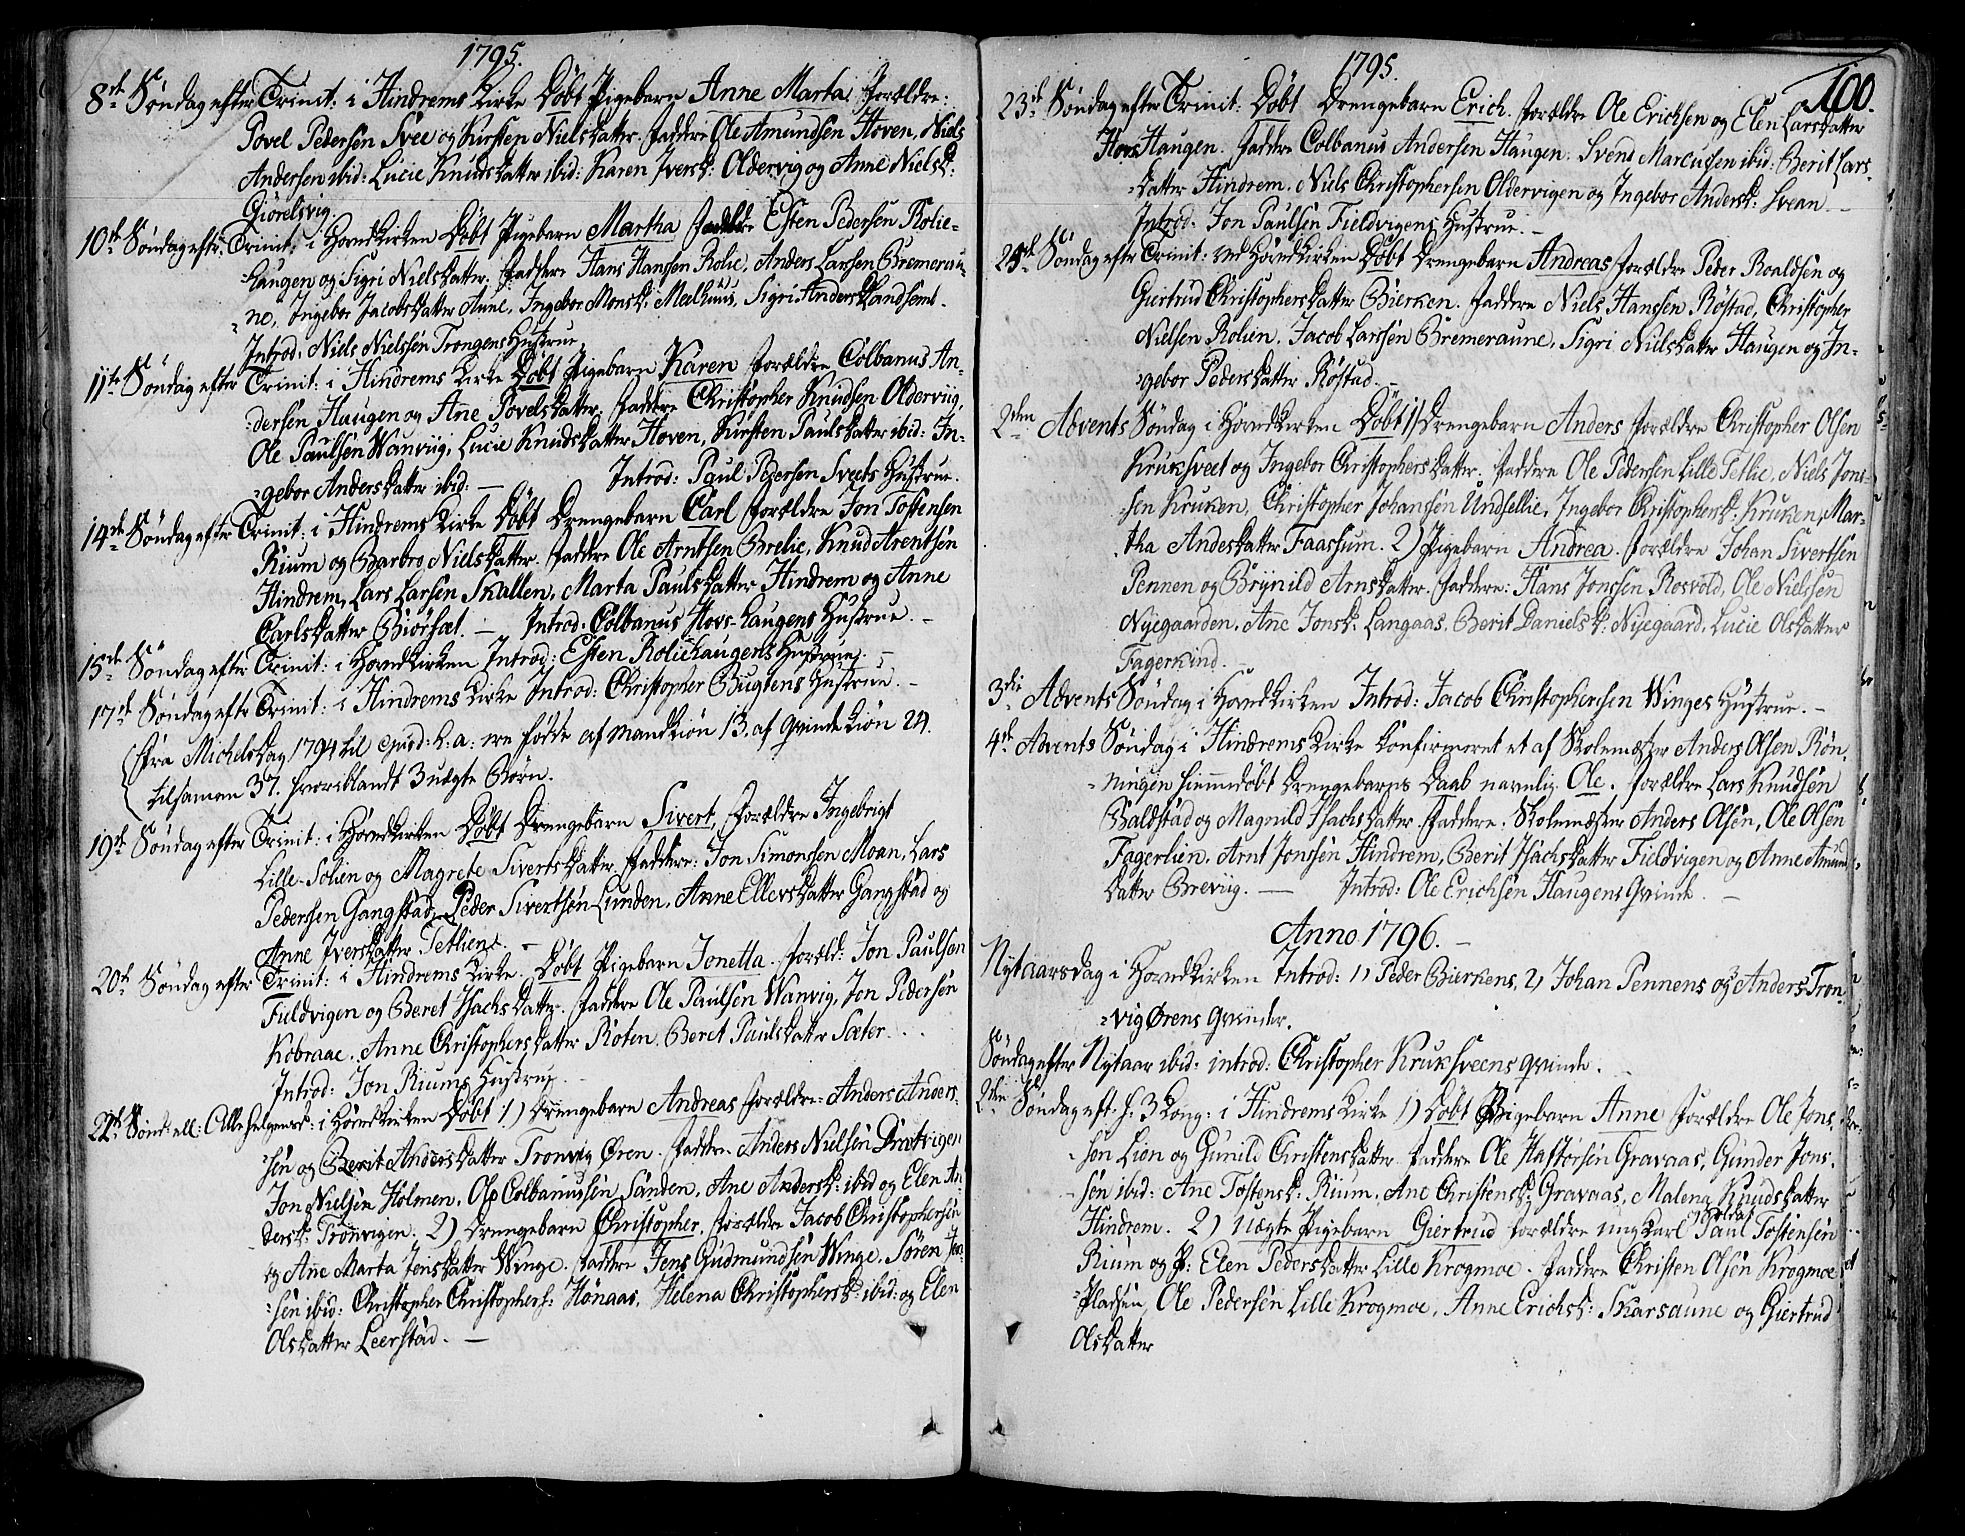 1795.
8de Søndag efter Trinit: i Hindrems Kirke Døbt Pigebarn Anne Marta. Forældre:
Povel Pedersen Svee og Kirsten Nielsdatter. Faddere Ole Amundsen Hoven, Niels
Andersen ibid: Lucie Knudsdatter ibid: Karen Iversd: Oldervig og Anne Nielsd:
Giörelsvig.
10de Søndag efter Trinit: i Hovedkirken Døbt Pigebarn Martha Esten Pedersen Rolie-
haugen og Sigri Nielsdatter. Faddere Hans Hansen Rolie, Anders Larsen Bremeraun-
ne, Ingebor Jacobsdatter Aune, Ingebor Monsd: Meelhuus, Sigri Andersd
Introd: Niels Nielsen Trongens Hustrue.
11te Søndag efter Trinit: i Hindrems Kirke Døbt Pigebarn Karen Forældre Colbanus An-
dersen Haugen og Ane Povelsdatter. Faddere Christopher Knudsen Oldervig,
Ole Paulsen Wanviig, Lucie Knudsdatter Hoven, Kirsten Paulsdatter ibid: In-
gebor Andersdatter ibid: — Introd: Paul Pedersen Sveets Hustrue.
14de Søndag efter Trinit: i Hindrems Kirke Døbt Drengebarn Carl Forældre Jon Tostensen
Rium og Barbro Nielsdatter. Faddere Ole Arntsen Brelie, Knud Arentsen
Hindrem, Lars Larsen Skallen, Marta Paulsdatter Hindrem og Anne
Carlsdatter Biörsæt. — Introd: Colbanus Hovs-haugens Hustrue. —
15de Søndag efter Trinit: i Hovedkirken Introd: Esten Roliehaugens Hustrue. —
17de Søndag efter Trinit: i Hindrems Kirke Introd: Christopher Bugtens Hustrue. —
(Fra Michelsdag 1794 til ejusd: h. a: ere fødde af Mandkiön 13. af Qvindekiön 24.
tilsamen 37. hvoriblandt 3 uægte Børn.
19de Søndag efter Trinit: i Hovedkirken Døbt Drengebarn Sivert, Forældre Ingebrigt
Lille-Solien og Magrete Sivertsdatter. Faddere: Jon Simonssen Moan, Lars
Pedersen Gangstad, Peder Sivertsen Lunden, Anne Ellevsdatter Gangstad og
Anne Iversdatter Tetliene. —
20de Søndag efter Trinit: i Hindrems Kirke. Døbt Pigebarn Jonetta. Foræld: Jon Paulsen
Fieldvigen og Beret Isachsdatter. Faddere Ole Paulsen Wanvig, Jon Pedersen
Kobraae, Anne Christophersdatter Roten, Beret Paulsdatter Sæter.
Introd: Jon Riums Hustrue.
22de Sønd: ell: Allehelgensd: i Hovedkirken Døbt 1) Drengebarn Andreas Forældre: Anders Anders-
sen og Berit Andersdatter Tronvig Øren. Faddere Anders Nielsen
Jon Nielsen Holmen, Ole Colbanussen Sanden, Ane Andersd: ibid og Elen An-
dersd: Tronvigen. 2) Drengebarn Christopher. Forældre Jacob Christophersen
og Ane Marta Jensdatter Winge. Faddere Jens Gudmundsen Winge, Søren Jen-
sen ibid: Christopher Christophers: Hönaas, Helena Christophersd: ibid: og Elen
Olsdatter Leerstad. —
1795.
100.
23de Søndag efter Trinit: Døbt Drengebarn Erich. Forældre Ole Erichsen og Elen Larsdatter
Hovs Haugen. Faddere Colbanus Andersen Haugen. Svend Marcussen ibid: Berit Lars-
datter Hindrem. Niels Christophersen Oldervigen og Ingebor Andersd: Svean. —
Introd: Jon Paulsen Fieldvigens Hustrue. —
Søndag efter Trinit: ved Hovedkirken Døbt Drengebarn Andreas Forældre Peder Roaldsen og
Giertrud Christophersdatter Bierken. Faddere Niels Hanssen Röstad, Christopher
Nielsen Rolien, Jacob Larssen Bremeraune, Sigri Nielsdatter Haugen og In-
gebor Pedersdatter Röstad. —
2den Advents Søndag i Hovedkirken Døbt 1) Drengebarn Anders Forældre Christopher Olsen
Kruksveet og Ingebor Christophersdatter. Faddere Ole Pedersen Lille Tetlie, Niels Jons-
sen Kruken, Christopher Johansen Undsetlie, Ingebor Christophersd: Kruken, Mar-
tha Andesdatter Faassum. 2) Pigebarn Andrea. Forældre Johan Sivertsen
Pennen og Brynild Arnsdatter. Faddere: Hans Jonssen Rosvold, Ole Nielssen
Nyegaarden, Ane Jonsd: Langaas, Berit Danielsd: Nyegaard, Lucie Olsdatter
Fagerkind. —
3die Advents Søndag i Hovedkirken Introd: Jacob Christophersen Winges Hustrue. —
4de Advents Søndag i Hindrems Kirke Confirmeret et af Skolemester Anders Olsen Røn-
ningen hiemmedøbt Drengebarns Daab navnlig Ole. Forældre Lars Knudsen
Baldstad og Magnild Isachsdatter. Faddere, Skolemester Anders Olsen, Ole Olsen
Fagerlien, Arnt Jonsen Hindrem, Berit Isachsdatter Fieldvigen og Anne Amun
datter Breviig. — Introd: Ole Erichsen Haugens Qvinde. —
Anno 1796. —
Nytaarsdag i Hovedkirken Introd: 1) Peder Bierkens, 2) Johan Pennens og 3) Anders Tron-
vig Ørens Qvinder.
Søndag efter Nytaar ibid: introd: Christopher Kruksveens Qvinde. —
2den Søndag eft: h. 3 Kong: i Hindrems Kirke 1) Døbt Pigebarn Anne Forældre Ole Jons-
sen Lien og Gunild Christensdatter. Faddere Ole Haftorsen Gravaas, Gunder Jons-
sen ibid: Ane Tostensd: Rium, Ane Christensd: Gravaas, Malena Knudsdatter
Hindrem. 2) Uægte Pigebarn Giertrud Forældre ungkarl Soldat Paul Tostensen
Rium og P: Elen Pedersdatter Lille Krogmoe. Faddere Christen Olsen Krogmoe
Pladsen, Ole Pedersen Lille Krogmoe, Anne Erichsd: Skarsaune og Giertrud
Olsdatter